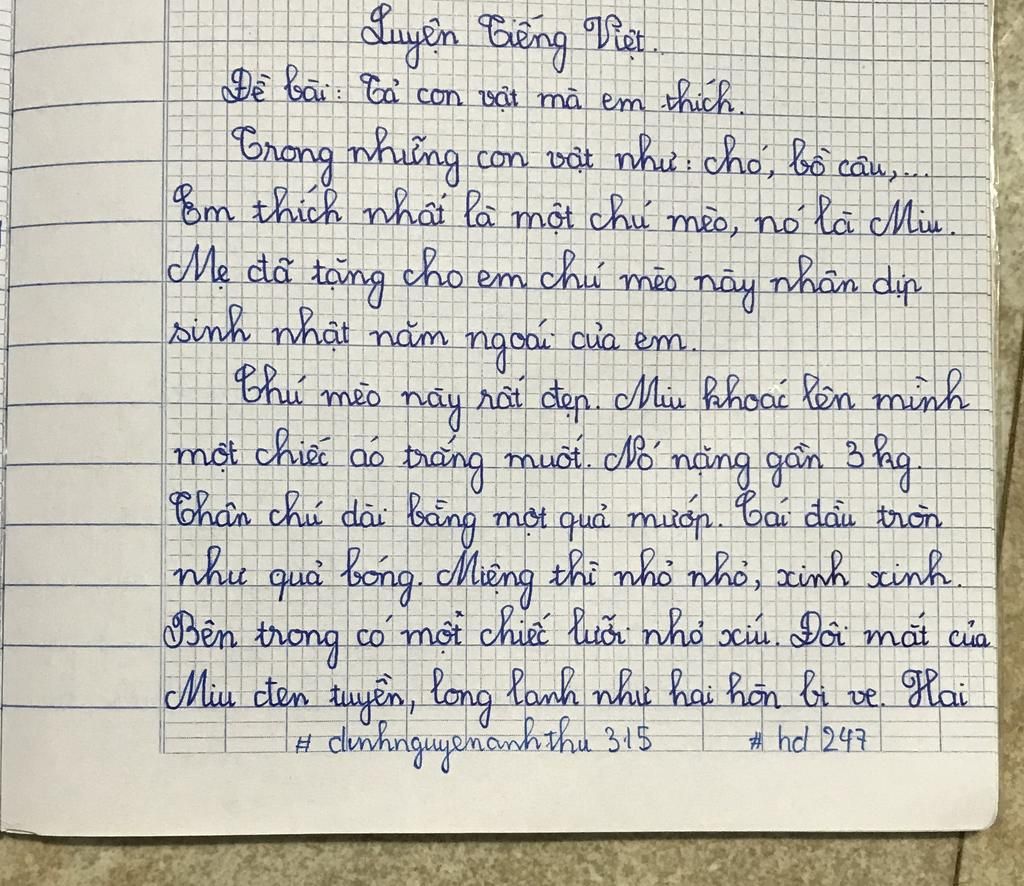 Luyện Tiếng Việt.
Đề bài: Tả con vật mà em thích.
Trong những con vật như: chó, bồ câu,...
Em thích nhất là một chú mèo, nó là Miu.
Mẹ đã tặng cho em chú mèo này nhân dịp
sinh nhật năm ngoái của em.
Chú mèo này rất đẹp. Miu khoác lên mình
một chiếc áo trắng muốt. Nó nặng gần 3 kg.
Thân chú dài bằng một quả mướp. Cái đầu tròn
như quả bóng. Miệng thì nhỏ nhỏ, xinh xinh.
Bên trong có một chiếc lưỡi nhỏ xíu. Đôi mắt của
Miu đen tuyền, long lanh như hai hòn bi ve. Hai
# dinhnguyenanhthu 315 # hd 247